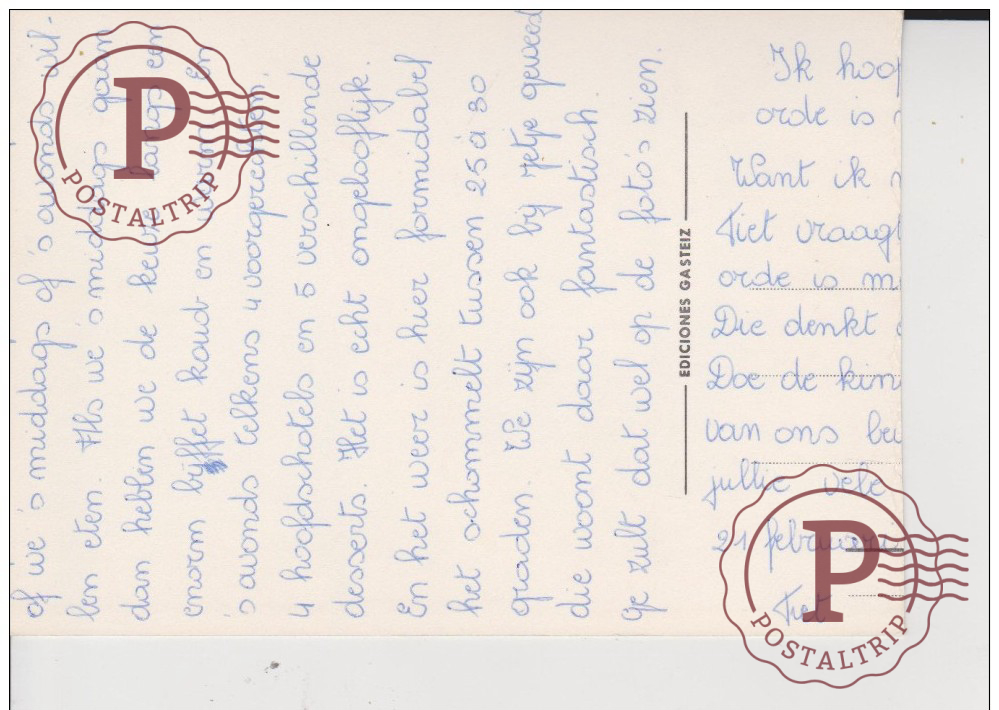 of we 's middags of 's avonds wil-
len eten. Als we 's middags gaan
dan hebben we de keuze langs een
enorm buffet koud en warm en
's avonds telkens 4 voorgerechten,
4 hoofdschotels en 5 verschillende
desserts. Het is echt ongelooflijk.
En het weer is hier formidabel
het schommelt tussen 25 à 30
graden. We zijn ook bij Jetje geweest
die woont daar fantastisch.
Ge zult dat wel op de foto's zien.
EDICIONES GASTEIZ
Ik hoop
orde is
Want ik
Tiet vraagt
orde is m
Die denkt
Doe de kin
van ons be
jullie vele
21 februari
Tiet
P
POSTALTRIP
P
POSTALTRIP